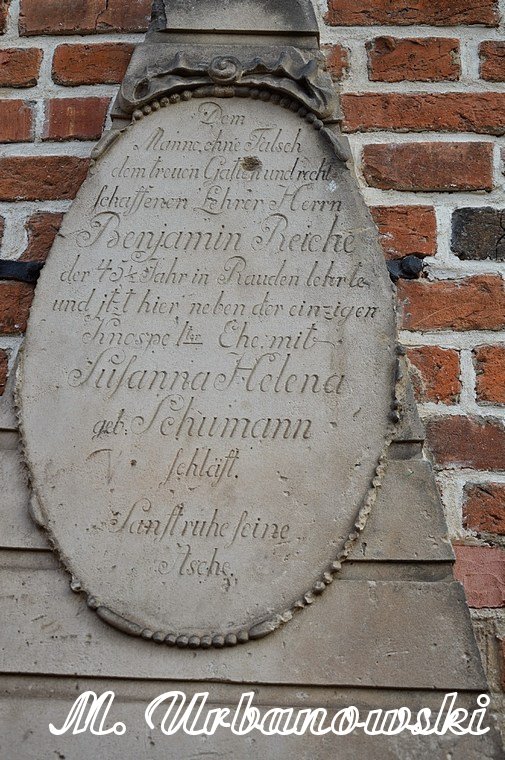 Dem
Manne ohne Falsch
dem treuen Gatten und recht-
schaffenen Lehrer Herrn
Benjamin Reiche
der 45½ Jahr in Rauden lehrte
und jtzt hier neben der einzigen
Knospe 1ter Ehe mit
Susanna Helena
geb. Schumann
schläft.
Sanft ruhe seine
Asche.
M. Urbanowski